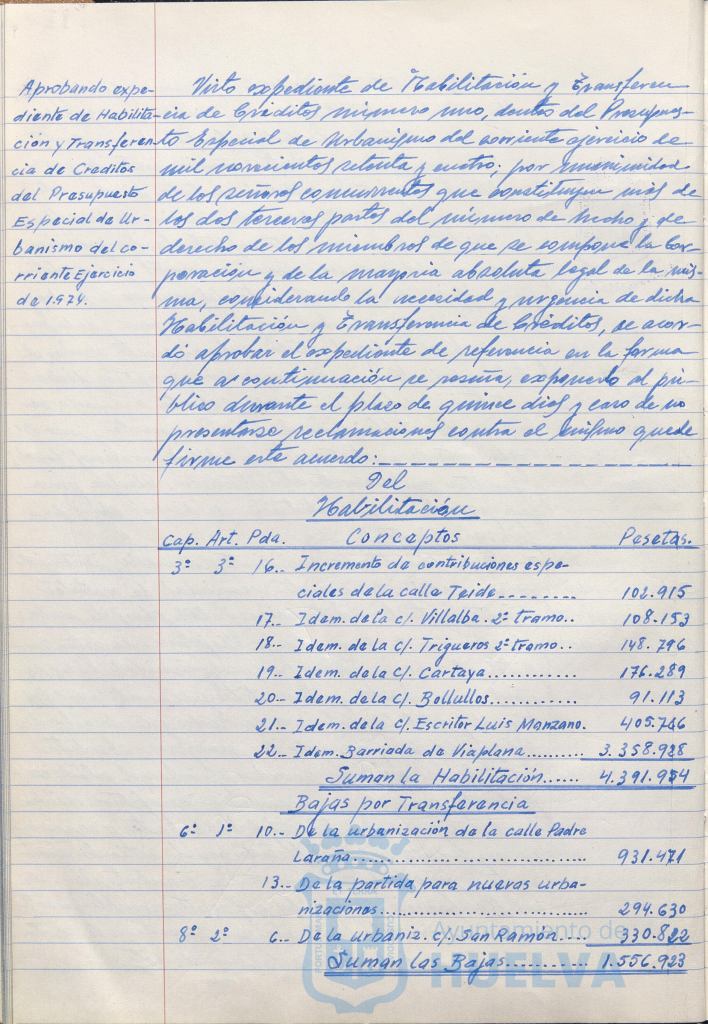 Aprobando expe-
diente de Habilita-
ción y Transferen-
cia de Creditos
del Presupuesto
Especial de Ur-
banismo del co-
rriente Ejercicio
de 1.974.
Visto expediente de Habilitación y Transferen
cia de Créditos número uno, dentro del Presupues-
to Especial de Urbanismo del corriente ejercicio de
mil novecientos setenta y cuatro; por unanimidad
de los señores concurrentes que constituyen más de
las dos terceras partes del número de hecho y de
derecho de los miembros de que se compone la Cor-
poración y de la mayoria absoluta legal de la mis-
ma, considerando la necesidad y urgencia de dicha
Habilitación y Transferencia de Créditos, se acor-
dó aprobar el expediente de referencia en la forma
que a continuación se reseña, exponerlo al pú-
blico durante el plazo de quince dias y caso de no
presentarse reclamaciones contra el mismo quede
firme este acuerdo:
Del
Habilitación
Cap. Art. Pda. Conceptos Pesetas.
3º 3º 16.- Incremento de contribuciones espe-
ciales de la calle Teide......... 102.915
17.- Idem. de la c/. Villalba. 2º tramo.. 108.153
18.- Idem. de la c/. Trigueros 2º tramo.. 148.796
19.- Idem. de la c/. Cartaya............ 176.289
20.- Idem. de la c/. Bollullos........... 91.113
21.- Idem. de la c/. Escritor Luis Manzano. 405.746
22.- Idem. Barriada de Viaplana.......... 3.358.928
Suman la Habilitación...... 4.391.954
Bajas por Transferencia
6º 1º 10.- De la urbanización de la calle Padre
Laraña................................ 931.471
13.- De la partida para nuevas urba-
nizaciones............................. 294.630
8º 2º 6.- De la urbaniz. c/. San Ramón.... 330.822
Suman las Bajas........... 1.556.923
Ayuntamiento de
HUELVA